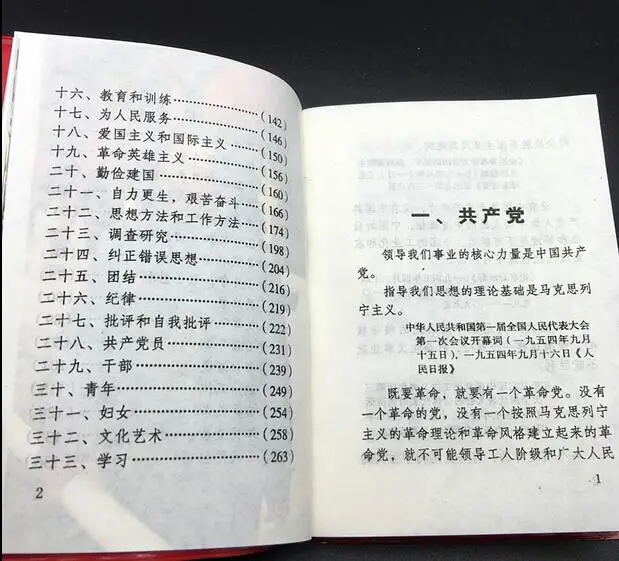 十六、教育和训练……………(142)
十七、为人民服务……………(146)
十八、爱国主义和国际主义……(150)
十九、革命英雄主义……………(156)
二十、勤俭建国………………(160)
二十一、自力更生，艰苦奋斗……(166)
二十二、思想方法和工作方法……(174)
二十三、调查研究………………(198)
二十四、纠正错误思想…………(204)
二十五、团结…………………(216)
二十六、纪律…………………(219)
二十七、批评和自我批评………(222)
二十八、共产党员………………(231)
二十九、干部…………………(239)
三十、青年……………………(249)
三十一、妇女…………………(254)
三十二、文化艺术………………(258)
三十三、学习…………………(263)
2
一、共产党
领导我们事业的核心力量是中国共产
党。
指导我们思想的理论基础是马克思列
宁主义。
中华人民共和国第一届全国人民代表大会
第一次会议开幕词（一九五四年九月
十五日），一九五四年九月十六日《人
民日报》
既要革命，就要有一个革命党。没有
一个革命的党，没有一个按照马克思列宁
主义的革命理论和革命风格建立起来的革
命党，就不可能领导工人阶级和广大人民
1